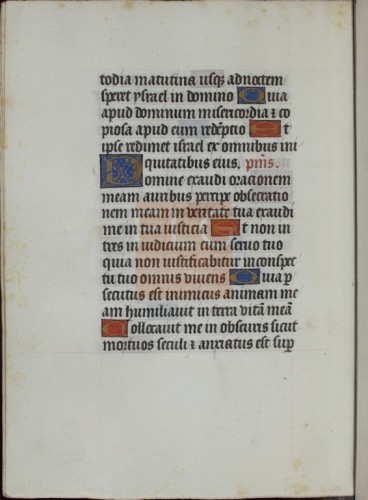 todia matutina usq; ad noctem
speret ysrael in domino Quia
apud dominum misericordia ⁊ co
piosa apud eum redēptio Et
ipse redimet israel ex omnibus ini
quitatibus eius. pm̄s.
Domine exaudi oracionem
meam auribus percipe obsecratio
nem meam in veritate tua exaudi
me in tua iusticia Et non in
tres in iudicium cum seruo tuo
quia non iustificabitur in conspec
tu tuo omnis viuens Quia p
secutus est inimicus animam me
am humiliauit in terra vitā meā
Collocauit me in obscuris sicut
mortuos seculi ⁊ anxiatus est sup